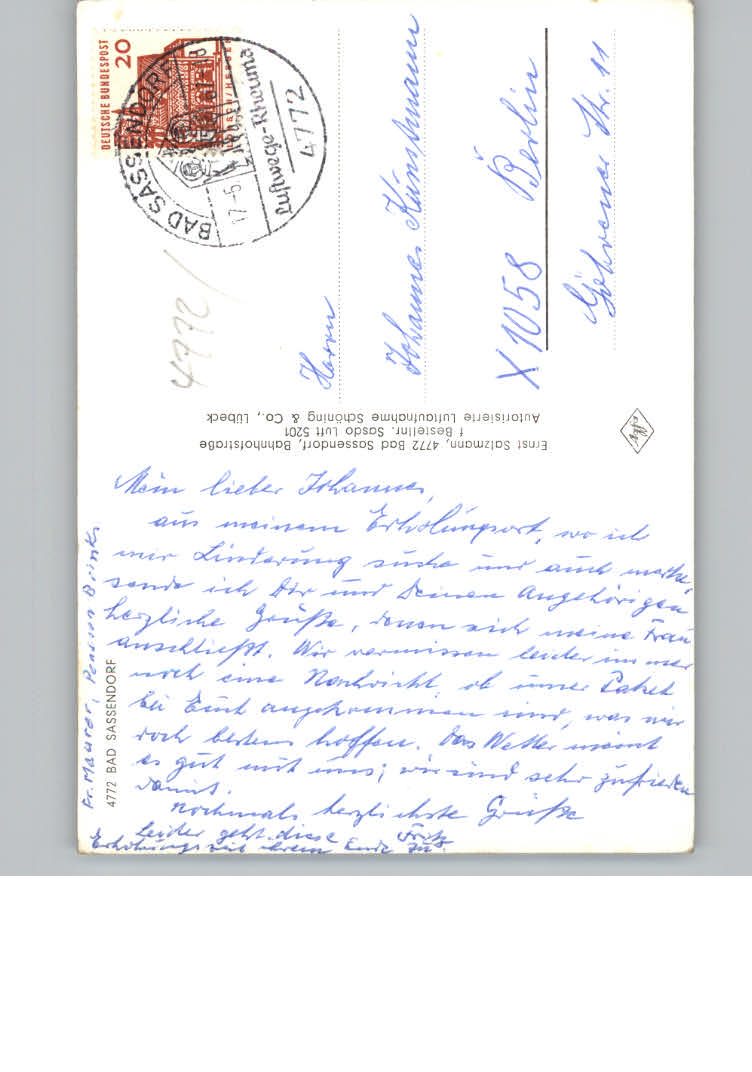 DEUTSCHE BUNDESPOST
20
LORSCH/HESSEN
BAD SASSENDORF
17.-5.
Luftwege-Rheuma
4772
4772/
Herrn
Johannes Kunstmann
X 1058 Berlin
Göhrener Str. 11
Ernst Salzmann, 4772 Bad Sassendorf, Bahnhofstraße
f Bestellnr. Sasdo Luft 5201
Autorisierte Luftaufnahme Schöning & Co., Lübeck
Mein lieber Johannes,
aus meinem Erholungsort, wo ich
mir Linderung suche und auch merke,
sende ich Dir und Deinen Angehörigen
herzliche Grüße, denen sich meine Frau
anschließt. Wir vermissen leider immer
noch eine Nachricht, ob unser Paket
bei Euch angekommen sind, was wir
doch bestens hoffen. Das Wetter meint
es gut mit uns; wir sind sehr zufrieden
damit.
Nochmals herzlichste Grüße
Fritz
Leider geht diese
Erholungszeit ihrem Ende zu.
Fr. Maurer, Pension Brinks
4772 BAD SASSENDORF